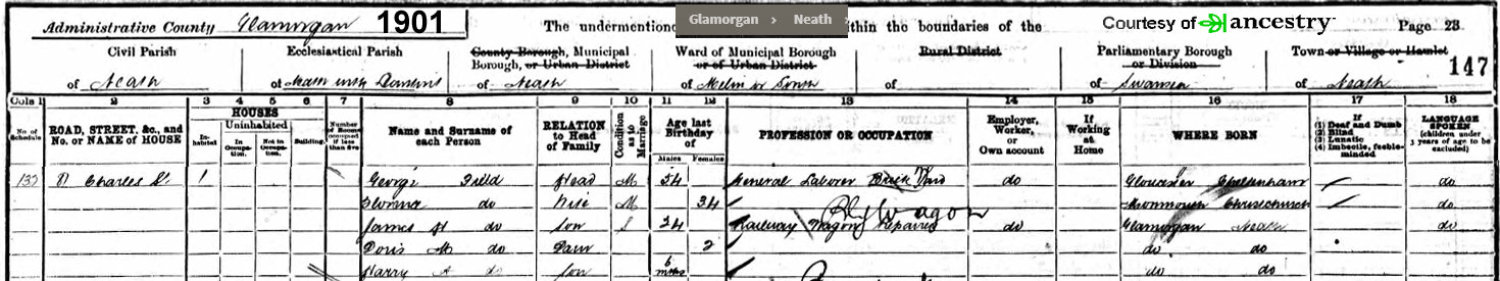 Administrative County Glamorgan 1901 The undermentione Glamorgan › Neath › ithin the boundaries of the Courtesy of ancestry Page 23
Civil Parish Ecclesiastical Parish County Borough, Municipal Borough, or Urban District Ward of Municipal Borough or of Urban District Rural District Parliamentary Borough or Division Town or Village or Hamlet 147
of Neath of Neath with of Neath of of of Swansea of Neath
Cols 1 2 3 HOUSES 7 8 9 10 11 12 13 14 15 16 17 18
4 5 6
No. of Schedule ROAD, STREET, &c., and No. or NAME of HOUSE Inhabited Uninhabited In Occupation. Not in Occupation. Building. Number of Rooms occupied if less than five Name and Surname of each Person RELATION to Head of Family Condition as to Marriage Age last Birthday of Males Females PROFESSION OR OCCUPATION Employer, Worker, or Own account If Working at Home WHERE BORN If (1) Deaf and Dumb (2) Blind (3) Lunatic (4) Imbecile, feeble-minded LANGUAGE SPOKEN (children under 3 years of age to be excluded)
Charles St 1 George Field Head M 54 General Laborer Brick Yard do Gloucester Cheltenham do
do Wife M 34 Monmouth Christchurch do
Rly Wagon
James H do Son S 24 Railway Wagon Repairer do Glamorgan Neath do
Doris M do Daur 2 do do
Harry A do Son 6 mths do do